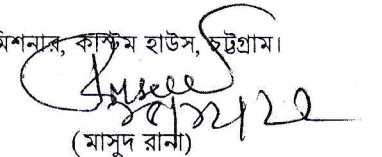 মিশনার, কাস্টম হাউস, চট্টগ্রাম।
(মাসুদ রানা)